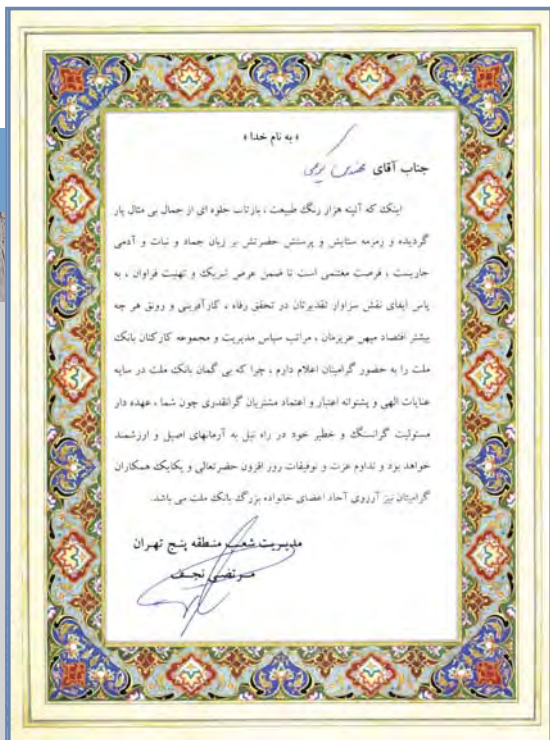 « به نام خدا »
جناب آقای مهندس
اینک که آئینه هزار رنگ طبیعت ، بازتاب جلوه ای از جمال بی مثال یار
گردیده و زمزمه ستایش و پرستش حضرتش بر زبان جماد و نبات و آدمی
جاریست ، فرصت مغتنمی است تا ضمن عرض تبریک و تهنیت فراوان ، به
پاس ایفای نقش سزاوار تقدیرتان در تحقق رفاه ، کارآفرینی و رونق هر چه
بیشتر اقتصاد میهن عزیزمان ، مراتب سپاس مدیریت و مجموعه کارکنان بانک
ملت را به حضور گرامیتان اعلام دارم ، چرا که بی گمان بانک ملت در سایه
عنایات الهی و پشتوانه اعتبار و اعتماد مشتریان گرانقدری چون شما ، عهده دار
مسئولیت گرانسنگ و خطیر خود در راه نیل به آرمانهای اصیل و ارزشمند
خواهد بود و تداوم عزت و توفیقات روز افزون حضرتعالی و یکایک همکاران
گرامیتان نیز آرزوی آحاد اعضای خانواده بزرگ بانک ملت می باشد.
مدیریت شعب منطقه پنج تهران
مرتضی نجف